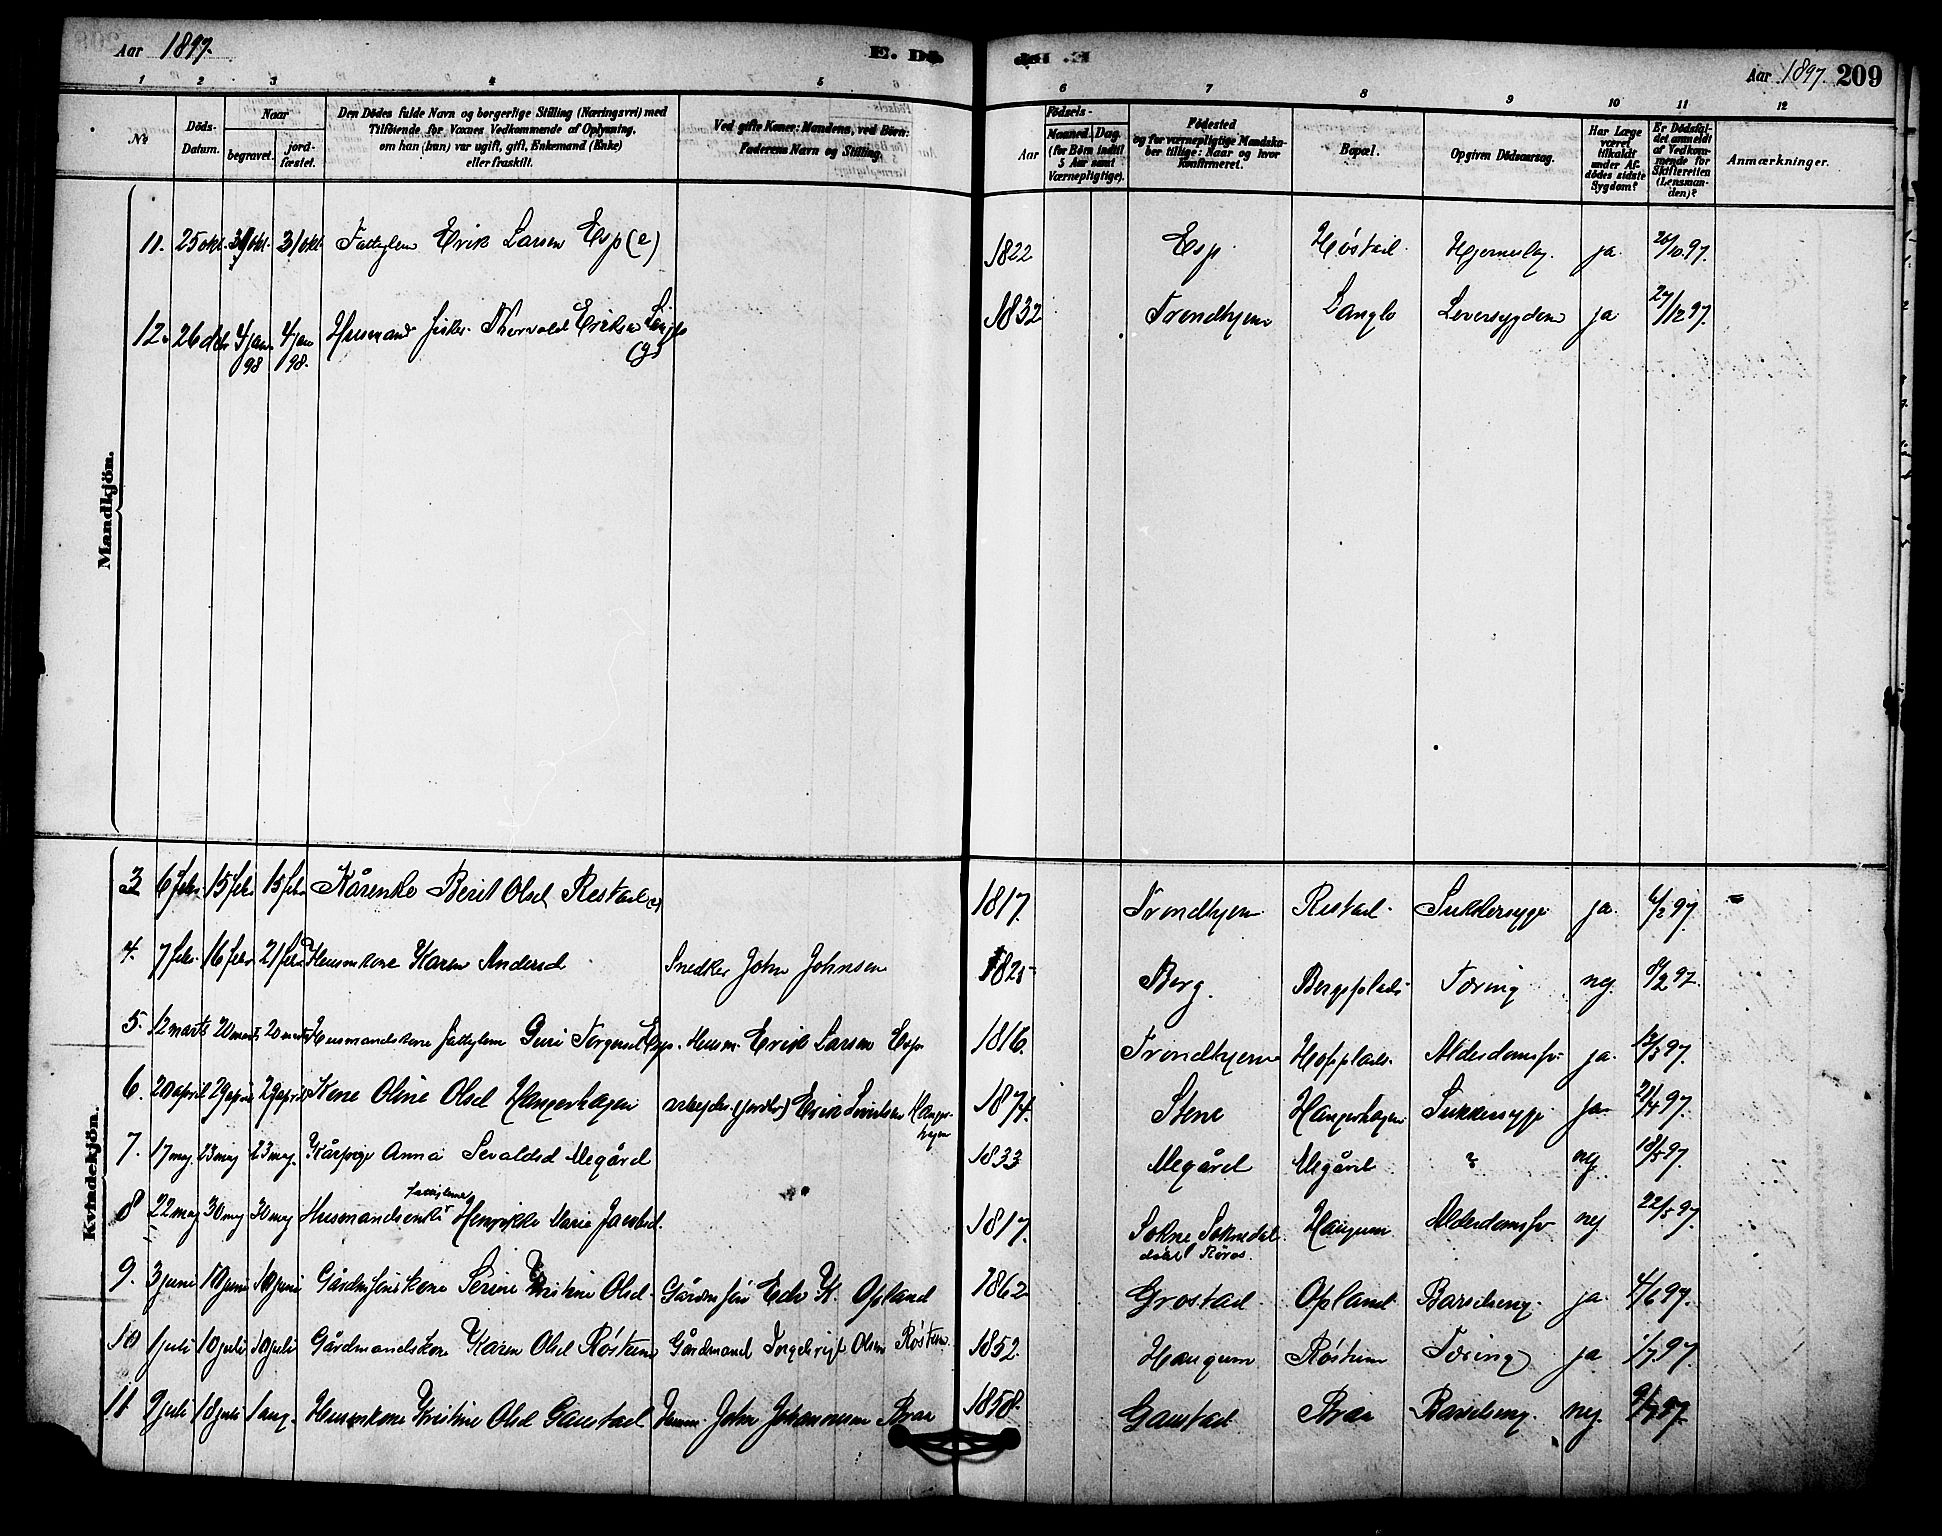 Aar 1897.
E. Dö
Aar 1897. 209
1 2 3 4 5 6 7 8 9 10 11 12
No
Döds-Datum.
Naar
begravet.
jord-fæstet.
Den Dödes fulde Navn og borgerlige Stilling (Næringsvei) med
Tilföiende for Voxnes Vedkommende af Oplysning,
om han (hun) var ugift, gift, Enkemand (Enke)
eller fraskilt.
Ved gifte Koner: Mandens, ved Börn:
Faderens Navn og Stilling.
Födsels-
Aar
Maaned. Dag.
(for Börn indtil
5 Aar samt
Værnepligtige).
Födested
og for værnepligtige Mandska-
ber tillige: Naar og hvor
konfirmeret.
Bopæl.
Opgiven Dödsaarsag.
Har Læge
været
tilkaldt
under Af-
dödes sidste
Sygdom?
Er Dödsfal-
det anmeldt
af Vedkom-
mende for
Skifteretten
(Lensman-
den)?
Anmærkninger.
Mandkjön.
11. 25 okt. 31 okt. 31 okt. Fattiglem Erik Larsen Esp (e) 1822 Esp. Höstad. Hjerneslag. ja 26/10 97.
12. 26 dcbr 4 jan 98 4 jan 98. Husmand fisker Thorvald Eriksen Langlo (g) 1832 Trondhjem Langlo Leversygdom ja 27/12 97.
Kvindekjön.
3 6 febr 15 febr 15 febr Kårenke Berit Olsd Restad (e) 1817. Trondhjem Restad. Sukkersyge ja. 6/2 97.
4. 7 febr. 16 febr 21 febr Husmkone Karen Andersd Snedker John Johnsen 1825 Berg. Bergsplads Tæring nej 8/2 97.
5. 12 marts 20 marts 20 marts Husmandskone fattiglem Guri Torgersd Esp. Husm. Erik Larsen Esp 1816. Trondhjem Hofplads. Alderdomssv ja. 12/3 97.
6. 20 april 29 april 29 april Kone Oline Olsd Haugerhagen arbejder (jordbr) Erik Haugerhagen 1874. Stene Haugerhagen Sukkersyge ja 21/4 97.
7. 17 maj 23 maj 23 maj. Kårpige Anna Sevaldsd Megård 1833 Megård Megård ? nej 18/5 97.
8 22 maj 30 maj 30 maj Husmandsenke fattiglem Henrikke Marie Jacobsd. 1817. Sokne Soknedal Röros. Haugum Alderdomssv nej 22/5 97.
9. 3 juni 10 juni 10 juni Gårdmförskone Serine Kristine Olsd. Gårdmför Edv K. Opland 1862 Grostad Opland Barselseng. ja 4/6 97.
10 1 juli 10 juli 10 juli Gårdmandskone Karen Olsd Röstum Gårdmand Ingebrigt Olsen Röstum. 1852. Haugum Röstum Tæring ja 1/7 97.
11 9 juli 18 juli 1 aug. Husmkone Kristine Olsd Gaustad Husm. John Johannesen Braa 1858. Gaustad Braa Barselseng. nej 9/7 97.